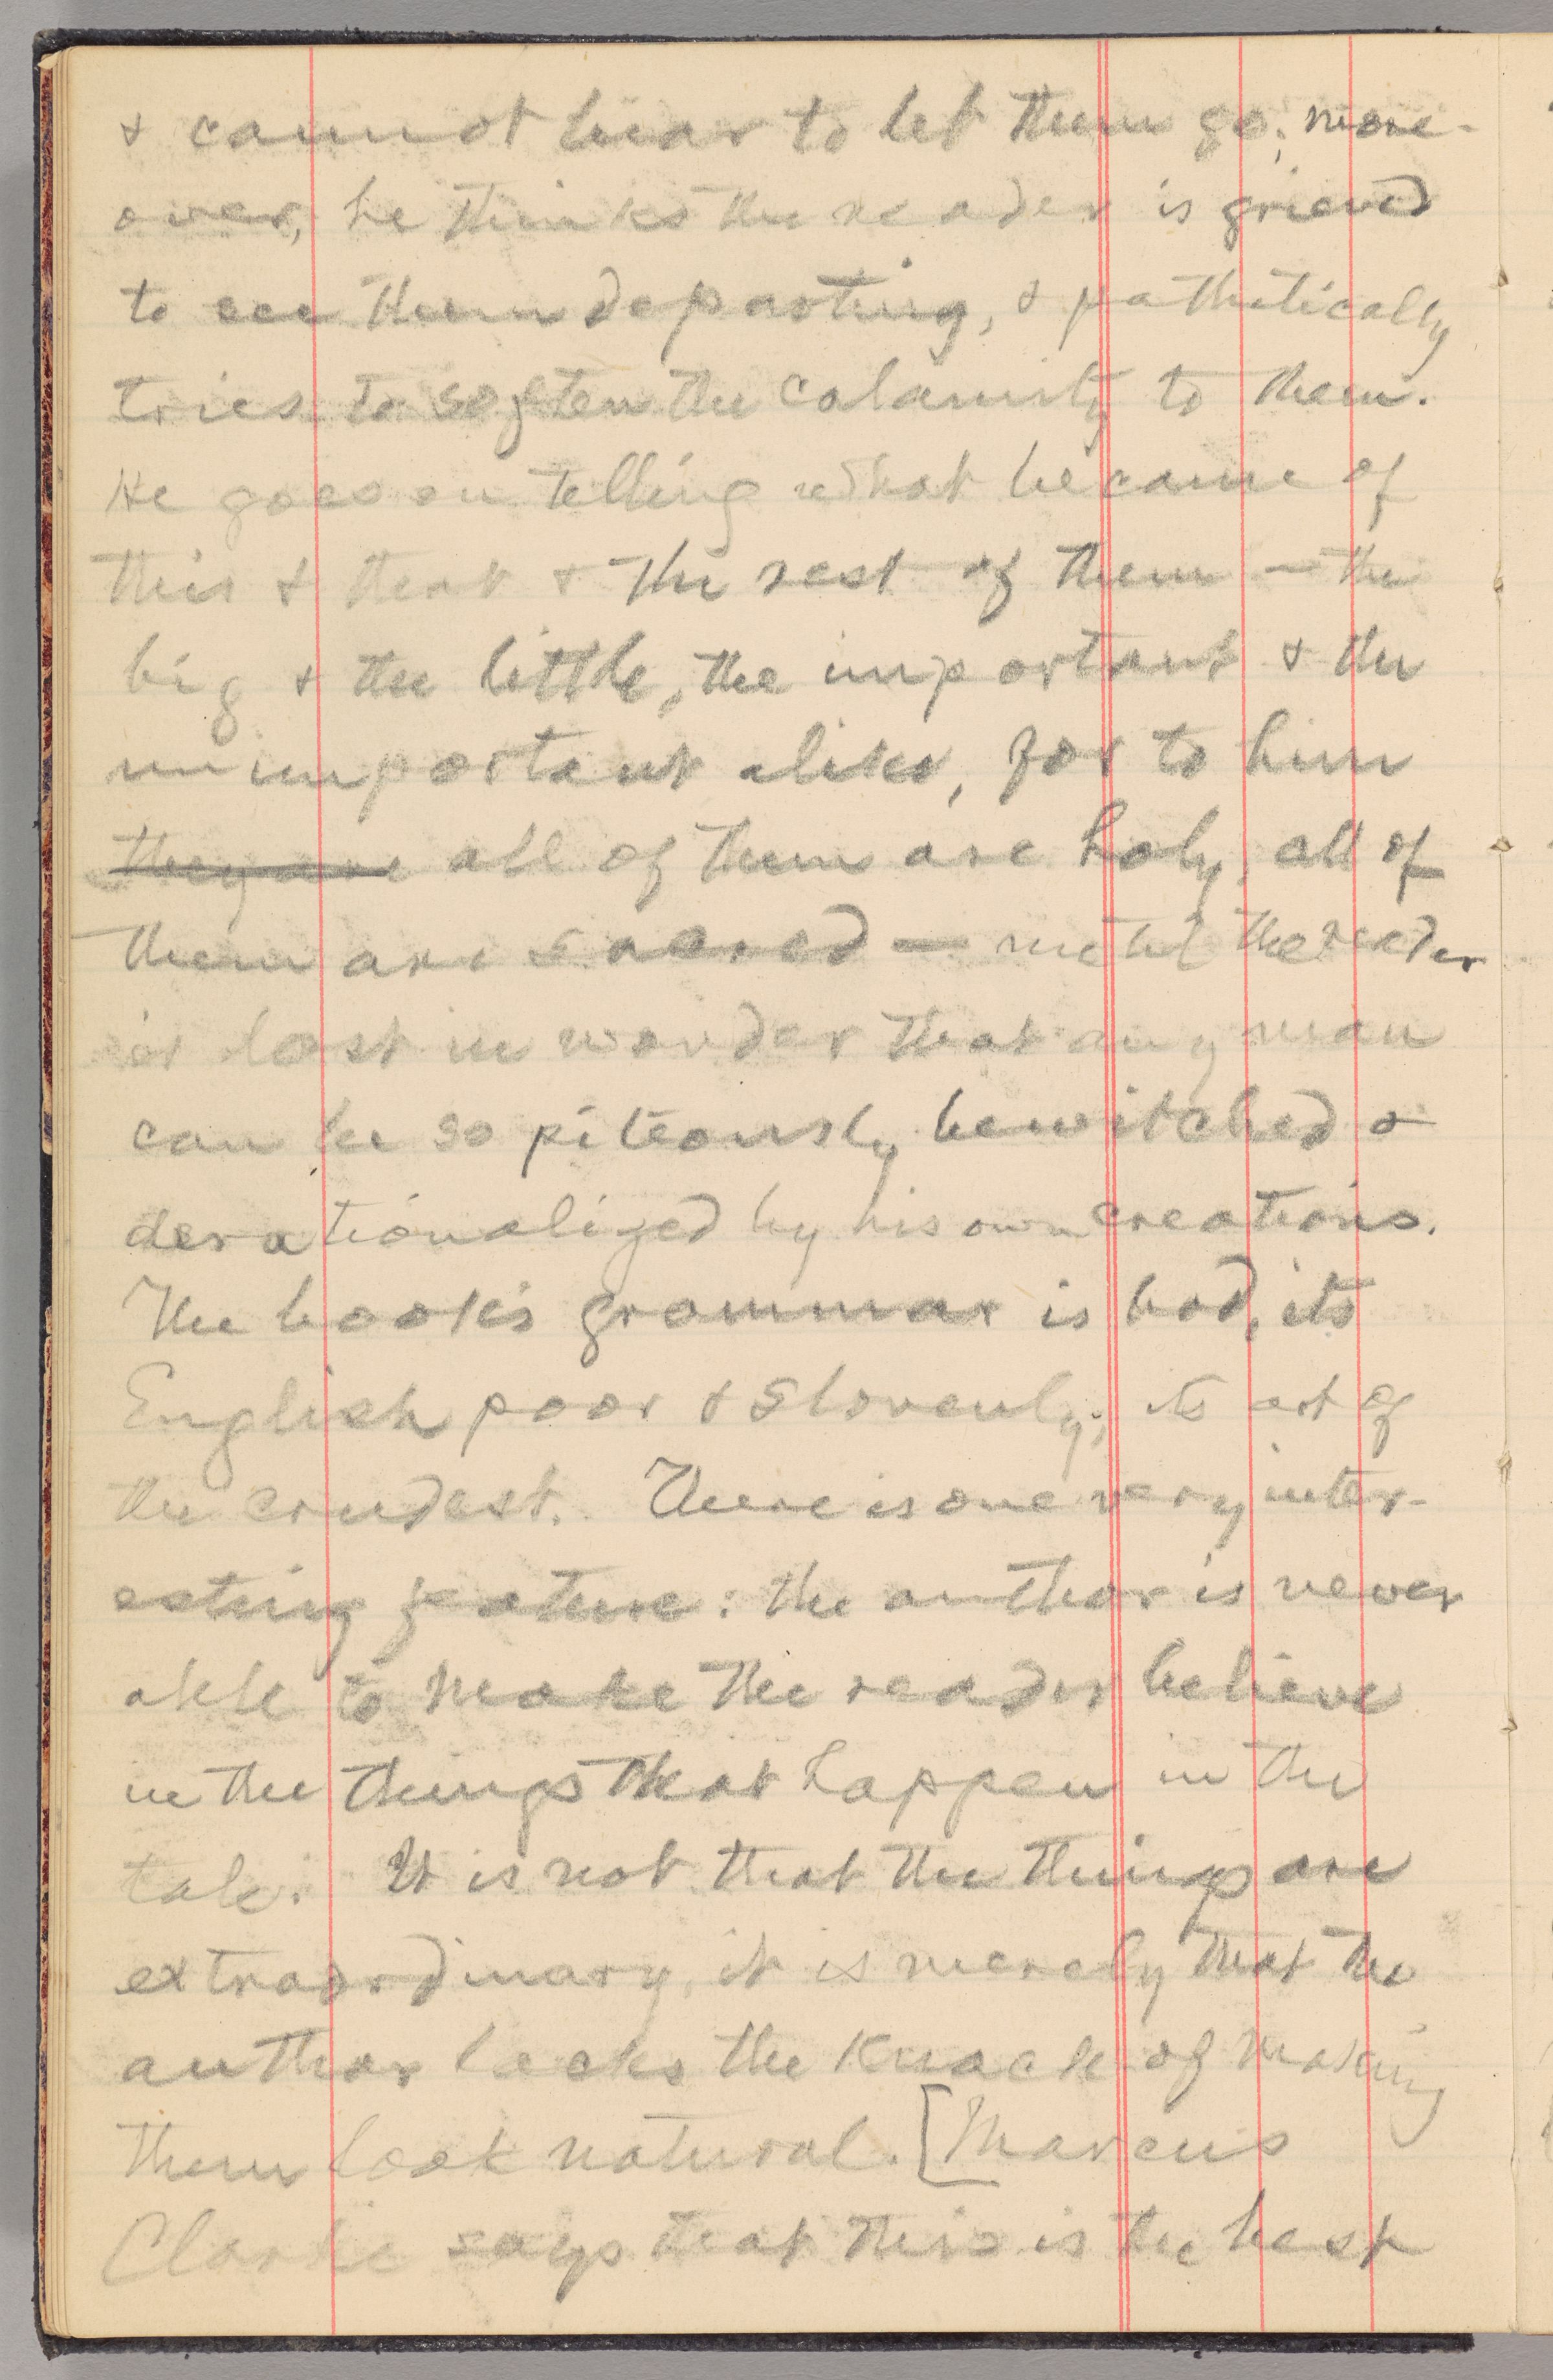 & cannot bear to let them go; more-
over, he thinks the reader is grieved
to see them departing, & pathetically
tries to soften the calamity to them.
He goes on telling what became of
this & that & the rest of them — the
big & the little, the important & the
unimportant alike, for to him
they are all of them are holy, all of
them are sacred — until the reader
is lost in wonder that any man
can be so piteously bewitched &
derationalized by his own creations.
The book's grammar is bad, its
English poor & slovenly, its art of
the crudest. There is one very inter-
esting feature: the author is never
able to make the reader believe
in the things that happen in the
tale. It is not that the things are
extraordinary, it is merely that the
author lacks the knack of making
them look natural. [Marcus
Clarke says that this is the best